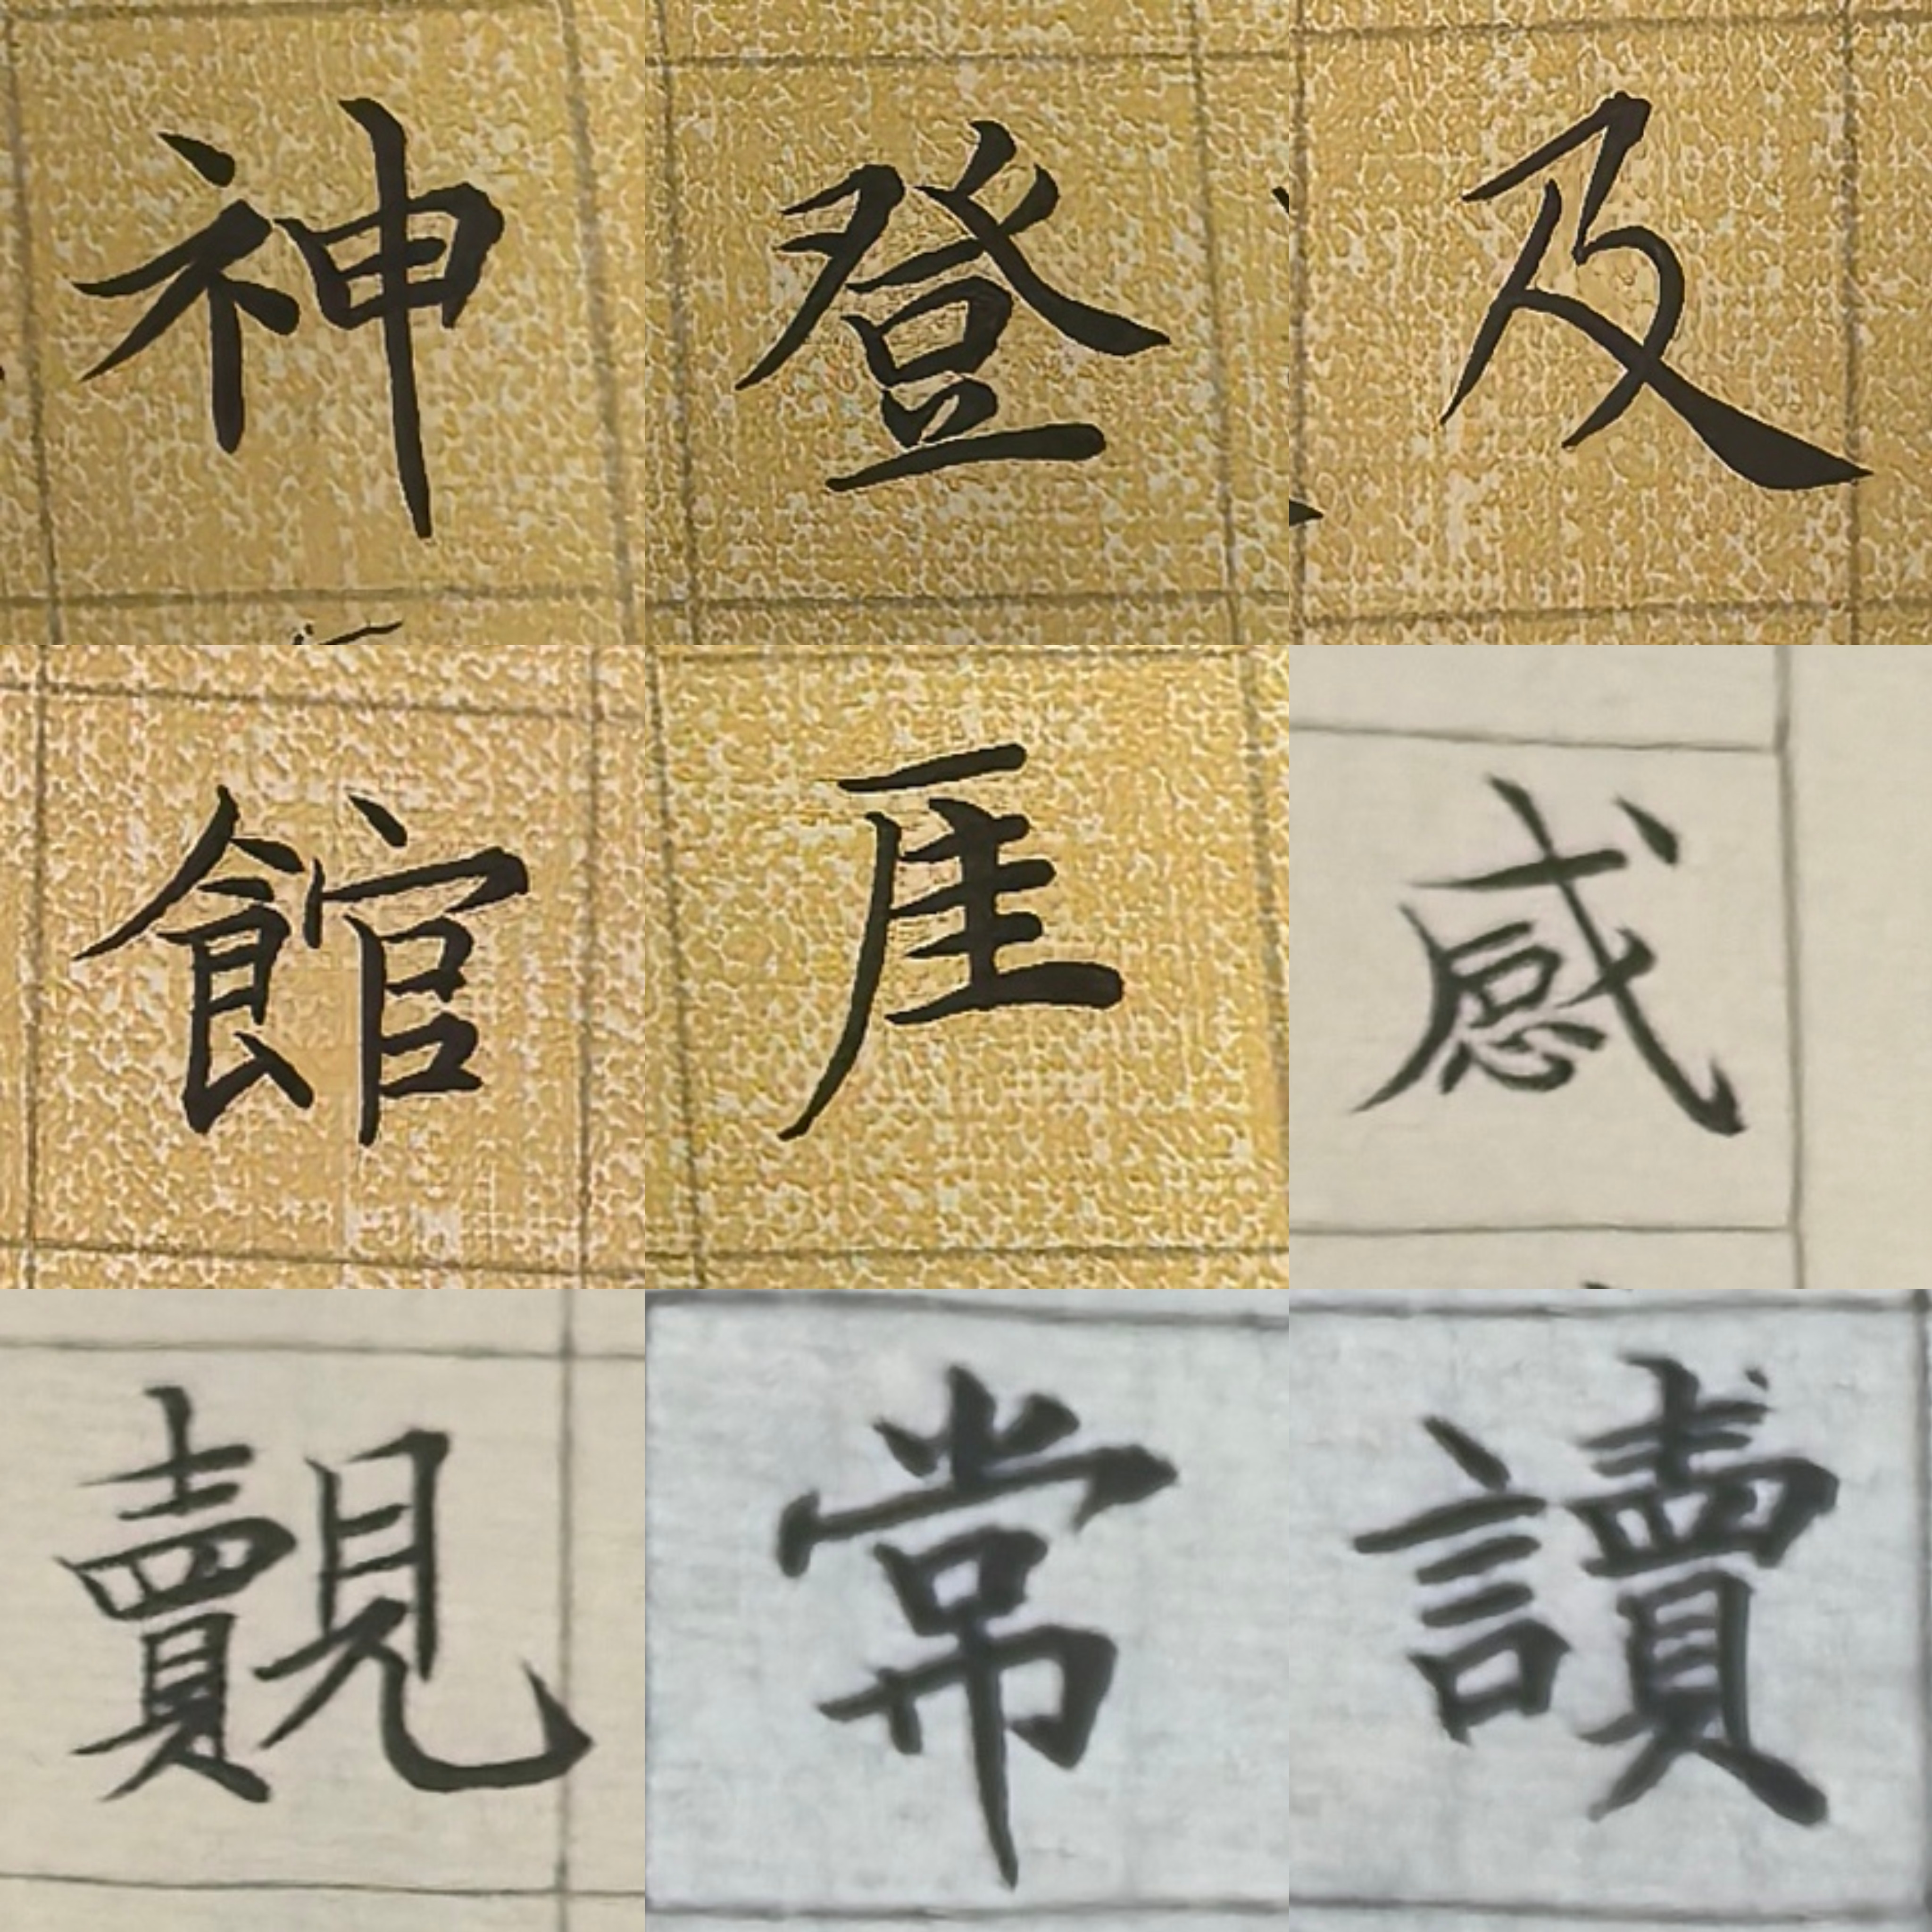 神登及
館厓感
觀常讀